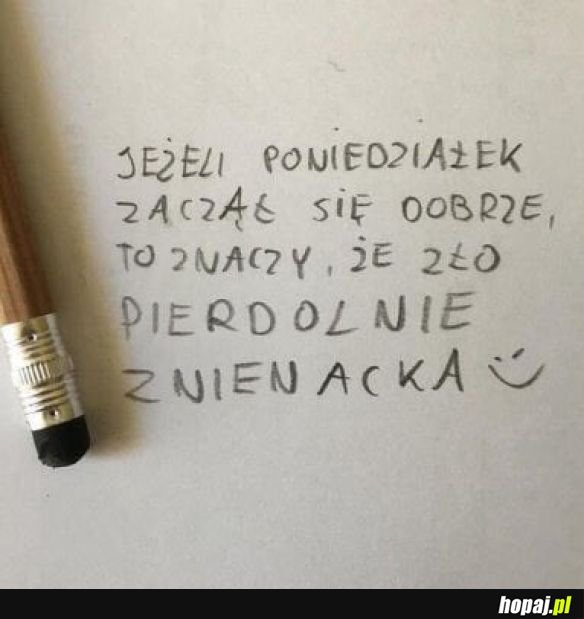 JEŻELI PONIEDZIAŁEK
ZACZĄŁ SIĘ DOBRZE,
TO ZNACZY, ŻE ZŁO
PIERDOLNIE
ZNIENACKA
hopaj.pl